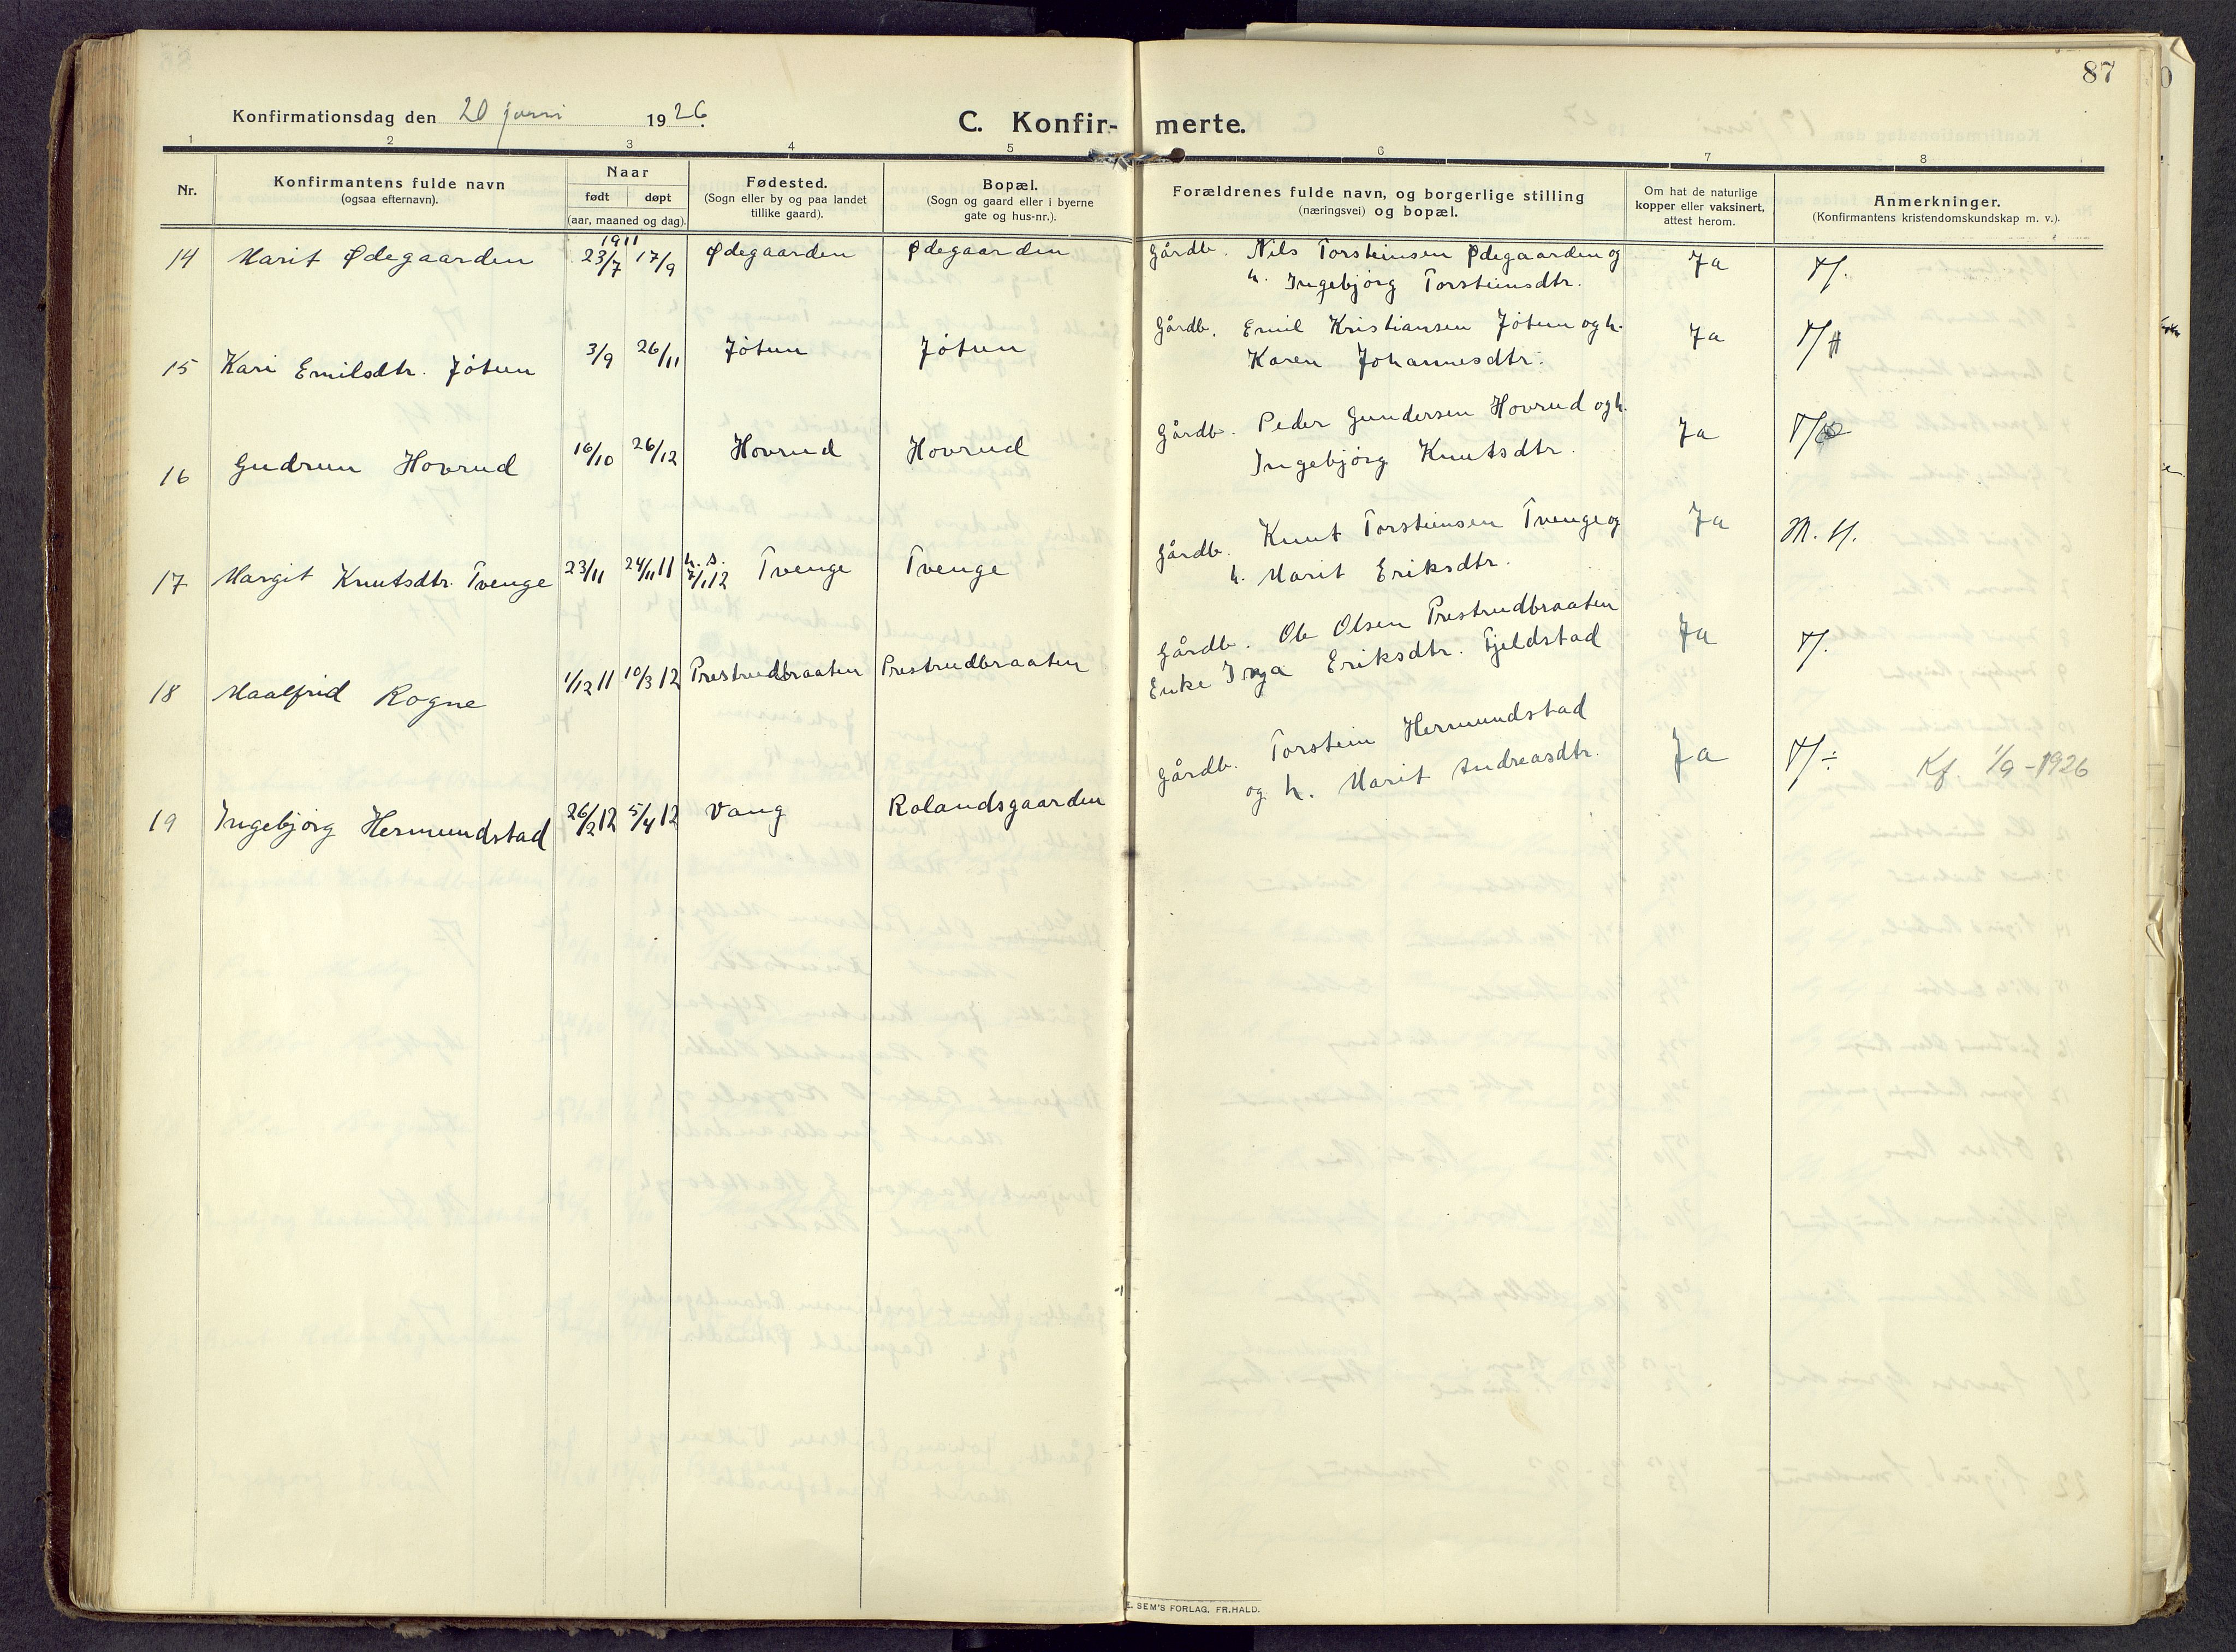 87
Konfirmationsdag den 20 juni 1926.
C. Konfir- merte.
1 2 3 4 5 6 7 8
Nr.
Konfirmantens fulde navn
(ogsaa efternavn).
Naar
født døpt
(aar, maaned og dag).
Fødested.
(Sogn eller by og paa landet
tillike gaard).
Bopæl.
(Sogn og gaard eller i byerne
gate og hus-nr.).
Forældrenes fulde navn, og borgerlige stilling
(næringsvei) og bopæl.
Om hat de naturlige
kopper eller vaksinert,
attest herom.
Anmerkninger.
(Konfirmantens kristendomskundskap m. v.).
1911
14 Marit Ødegaarden 23/7 17/9 Ødegaarden Ødegaarden Gårdb. Nils Torsteinsen Ødegaarden og Ja
h. Ingebjørg Torsteinsdtr.
15 Kari Emilsdtr. Jøtun 3/9 26/11 Jøtun Jøtun Gårdb. Emil Kristiansen Jøtun og h. Ja
Karen Johannesdtr.
16 Gudrun Hovrud 16/10 26/12 Hovrud Hovrud Gårdb. Peder Gundersen Hovrud og h. Ja
Ingebjørg Knutsdtr.
17 Margit Knutsdtr. Tvenge 23/11 24/11 11 h. d. 7/1 12 Tvenge Tvenge Gårdb. Knut Torsteinsen Tvenge og Ja M. H.
h. Marit Eriksdtr.
18 Maalfrid Rogne 1/12 11 10/3 12 Prestrudbraaten Prestrudbraaten Gårdb. Ole Olsen Prestrudbraaten Ja
Enke Inga Eriksdtr. Fjeldstad
19 Ingebjørg Hermundstad 26/2 12 5/4 12 Vang Rolandsgaarden Gårdb. Torstein Hermundstad Ja Kf. 1/9-1926
og h. Marit Andreasdtr.
E. SEM'S FORLAG. FR.HALD.